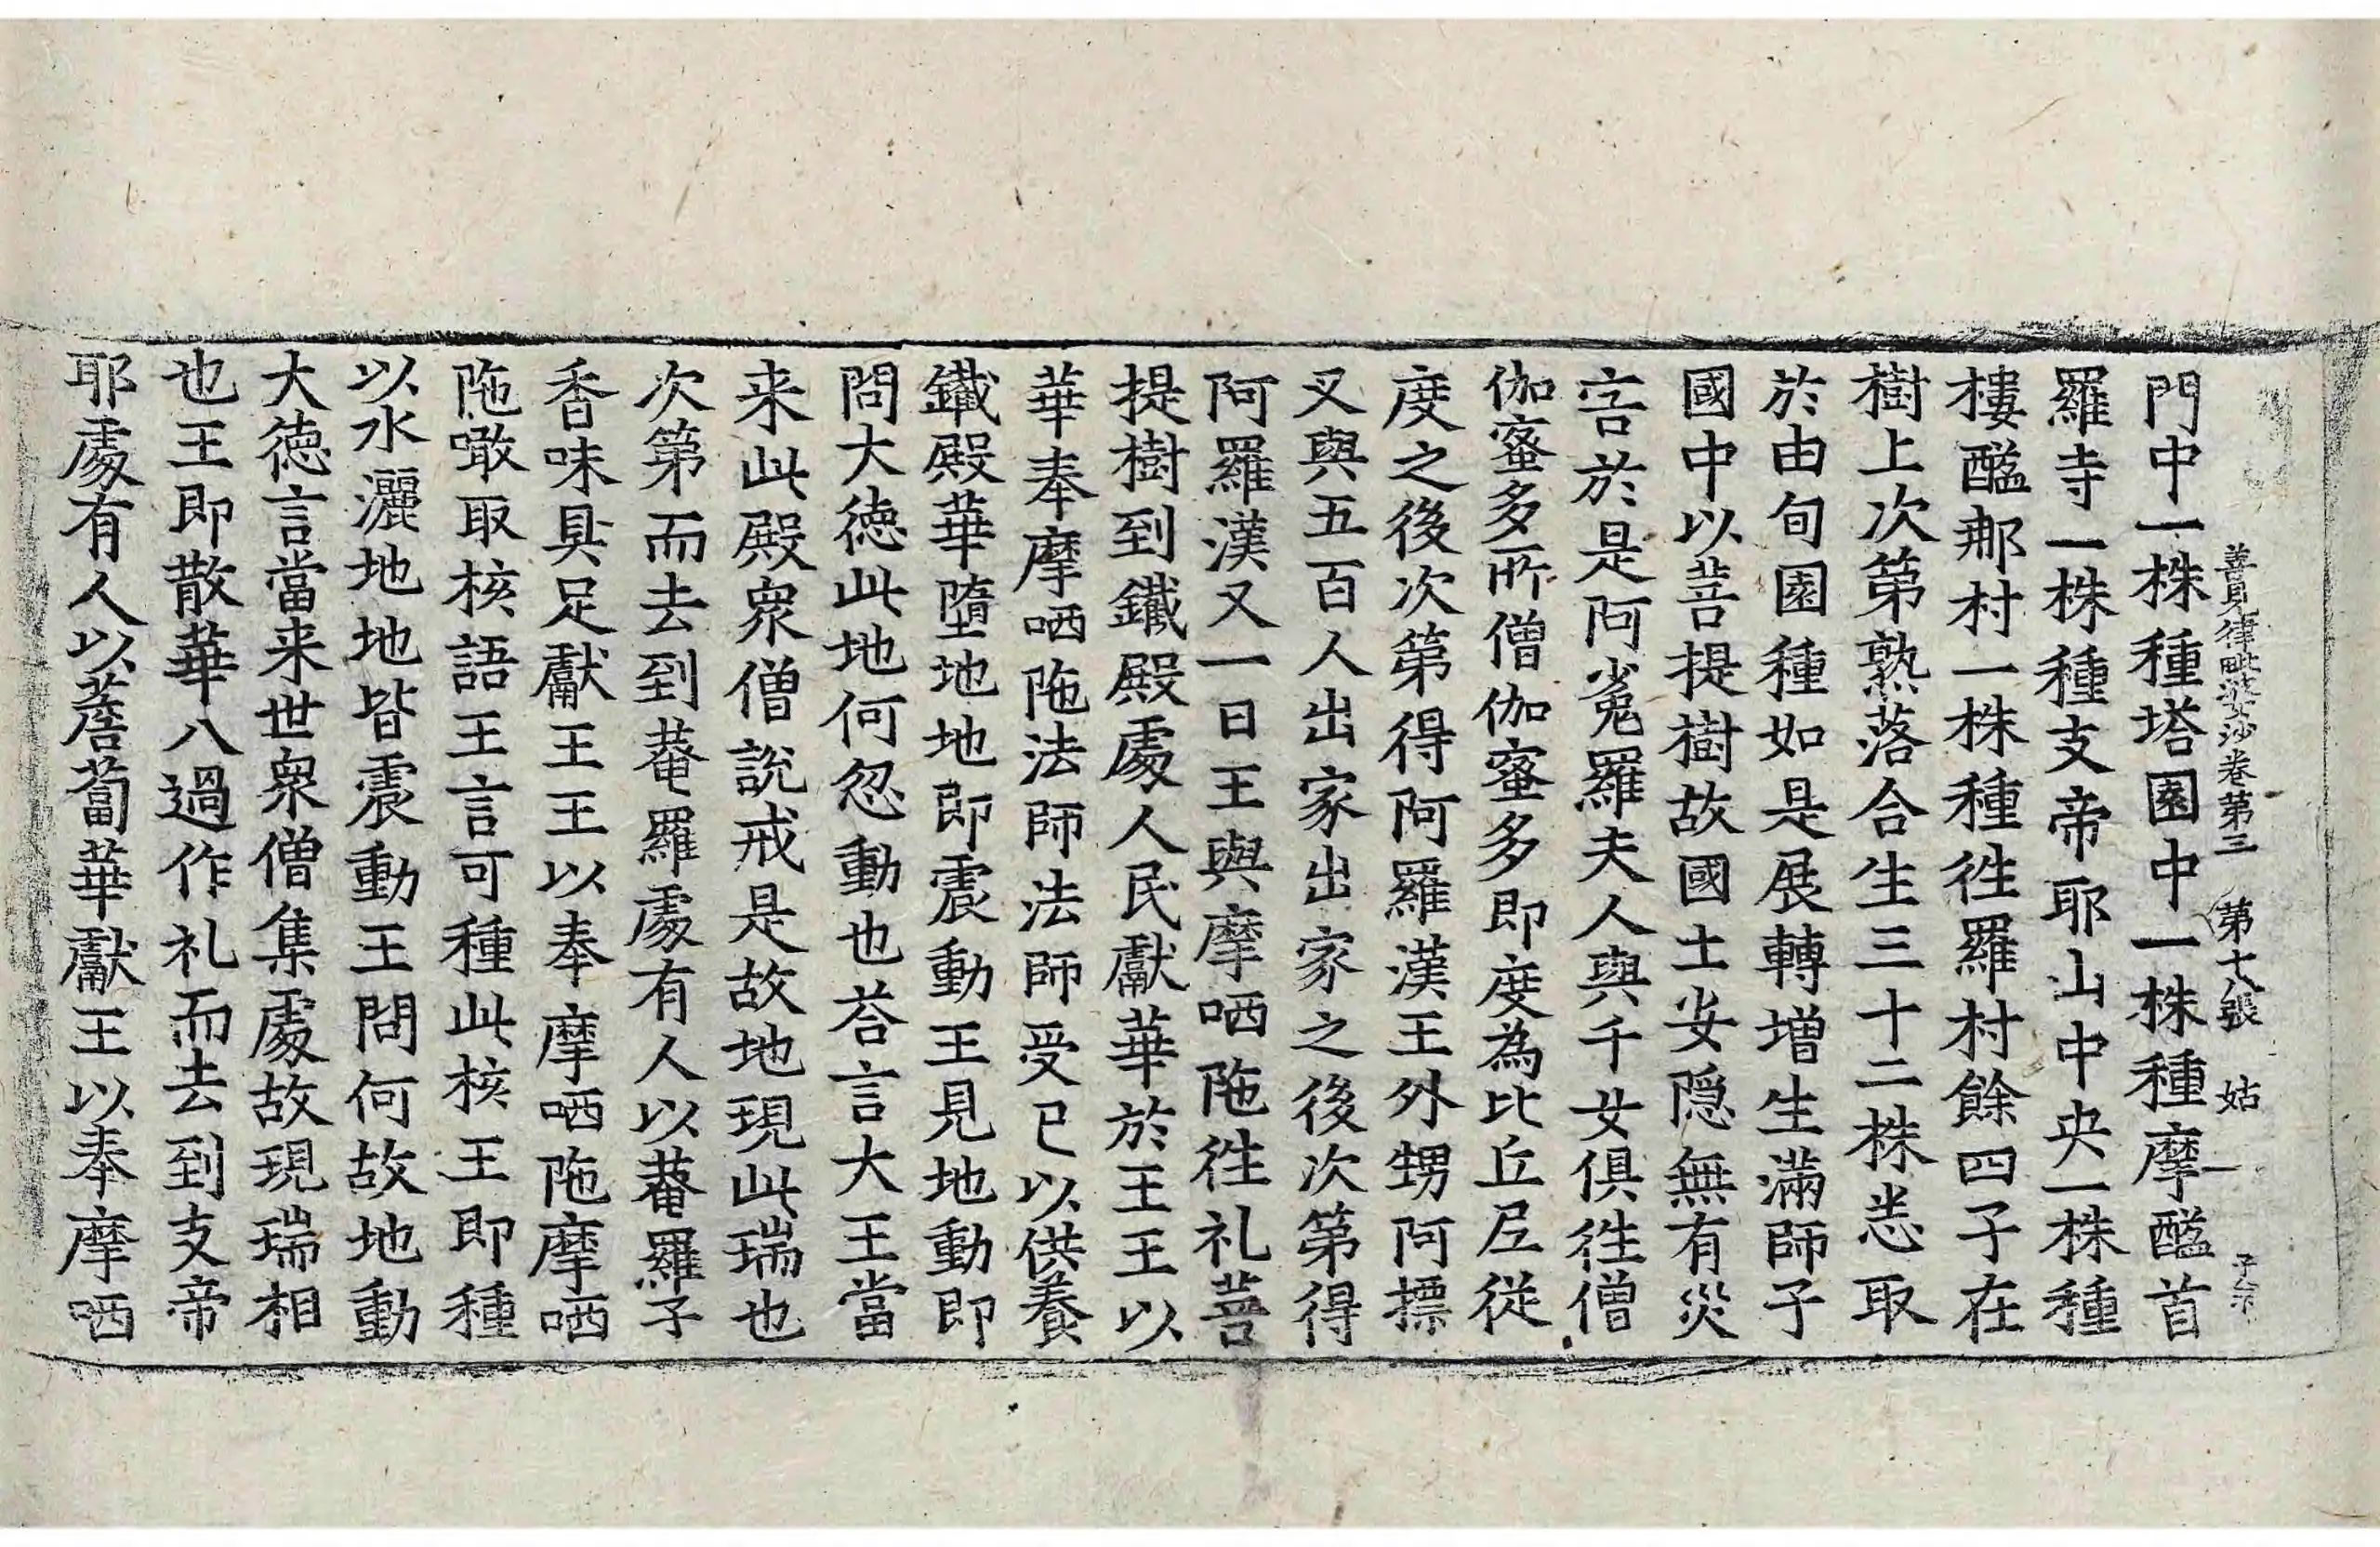 善見律毗婆沙卷第三 第十八張 姑
門中一株種塔園中一株種摩醯首
羅寺一株種支帝耶山中央一株種
樓醯那村一株種徃羅村餘四子在
樹上次第熟落合生三十二株悉取
於由旬園種如是展轉增生滿師子
國中以菩提樹故國土安隠無有災
害於是阿㝹羅夫人與千女俱徃僧
伽蜜多所僧伽蜜多即度為比丘尼從
度之後次第得阿羅漢王外甥阿摽
叉與五百人出家出家之後次第得
阿羅漢又一日王與摩哂陁徃礼菩
提樹到鐵殿處人民獻華於王王以
華奉摩哂陁法師法師受已以供養
鐵殿華墮地地即震動王見地動即
問大德此地何忽動也荅言大王當
来此殿衆僧說戒是故地現此瑞也
次第而去到菴羅處有人以菴羅子
香味具足獻王王以奉摩哂陁摩哂
陁噉取核語王言可種此核王即種
以水灑地地皆震動王問何故地動
大德言當来世衆僧集處故現瑞相
也王即散華八過作礼而去到支帝
耶處有人以薝蔔華獻王以奉摩哂